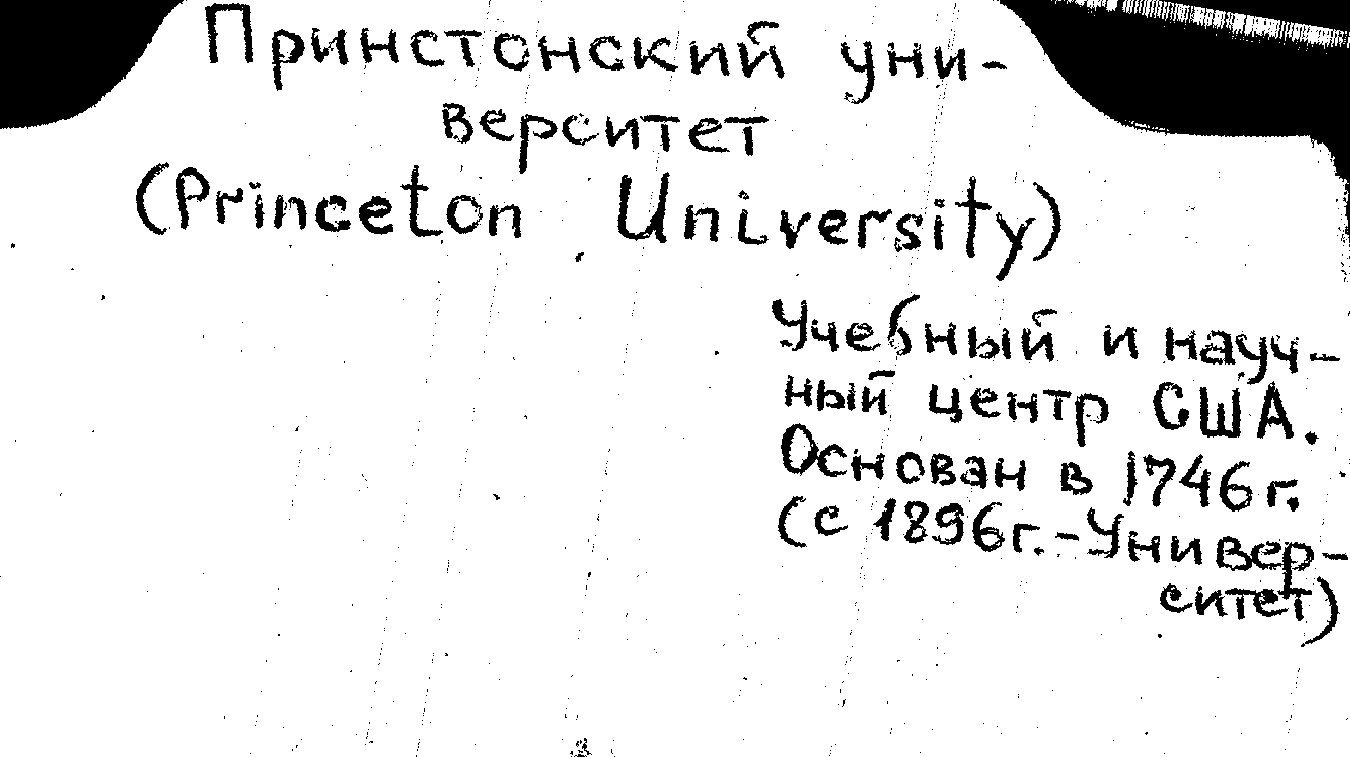 Принстонский уни-
верситет
(Princeton University)
Учебный и науч-
ный центр США.
Основан в 1746г.
(с 1896г.-Универ-
ситет)